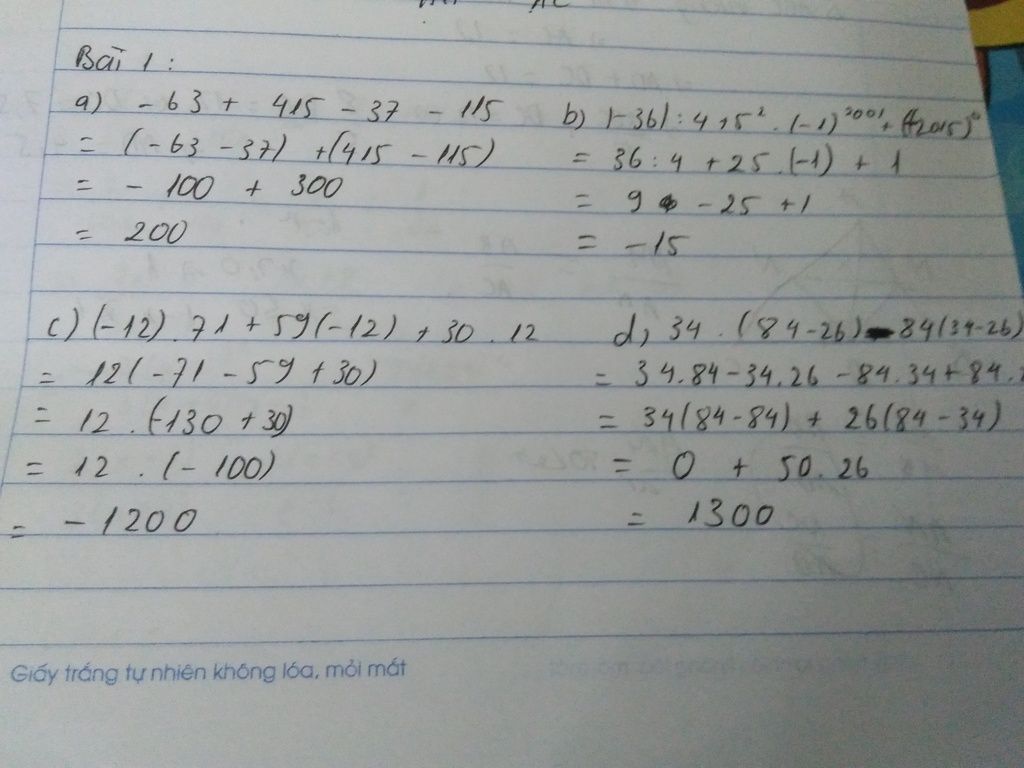 Bài 1:
a) -63 + 415 - 37 - 115
= (-63 - 37) + (415 - 115)
= - 100 + 300
= 200
b) |-36| : 4 + 5² . (-1)²⁰⁰¹ + (-2015)⁰
= 36 : 4 + 25 . (-1) + 1
= 9 - 25 + 1
= -15
c) (-12) . 71 + 59 (-12) + 30 . 12
= 12 (-71 - 59 + 30)
= 12 . (-130 + 30)
= 12 . (-100)
= -1200
d) 34 . (84 - 26) - 84 (34 - 26)
= 34.84 - 34.26 - 84.34 + 84.
= 34 (84 - 84) + 26 (84 - 34)
= 0 + 50.26
= 1300
Giấy trắng tự nhiên không lóa, mỏi mắt